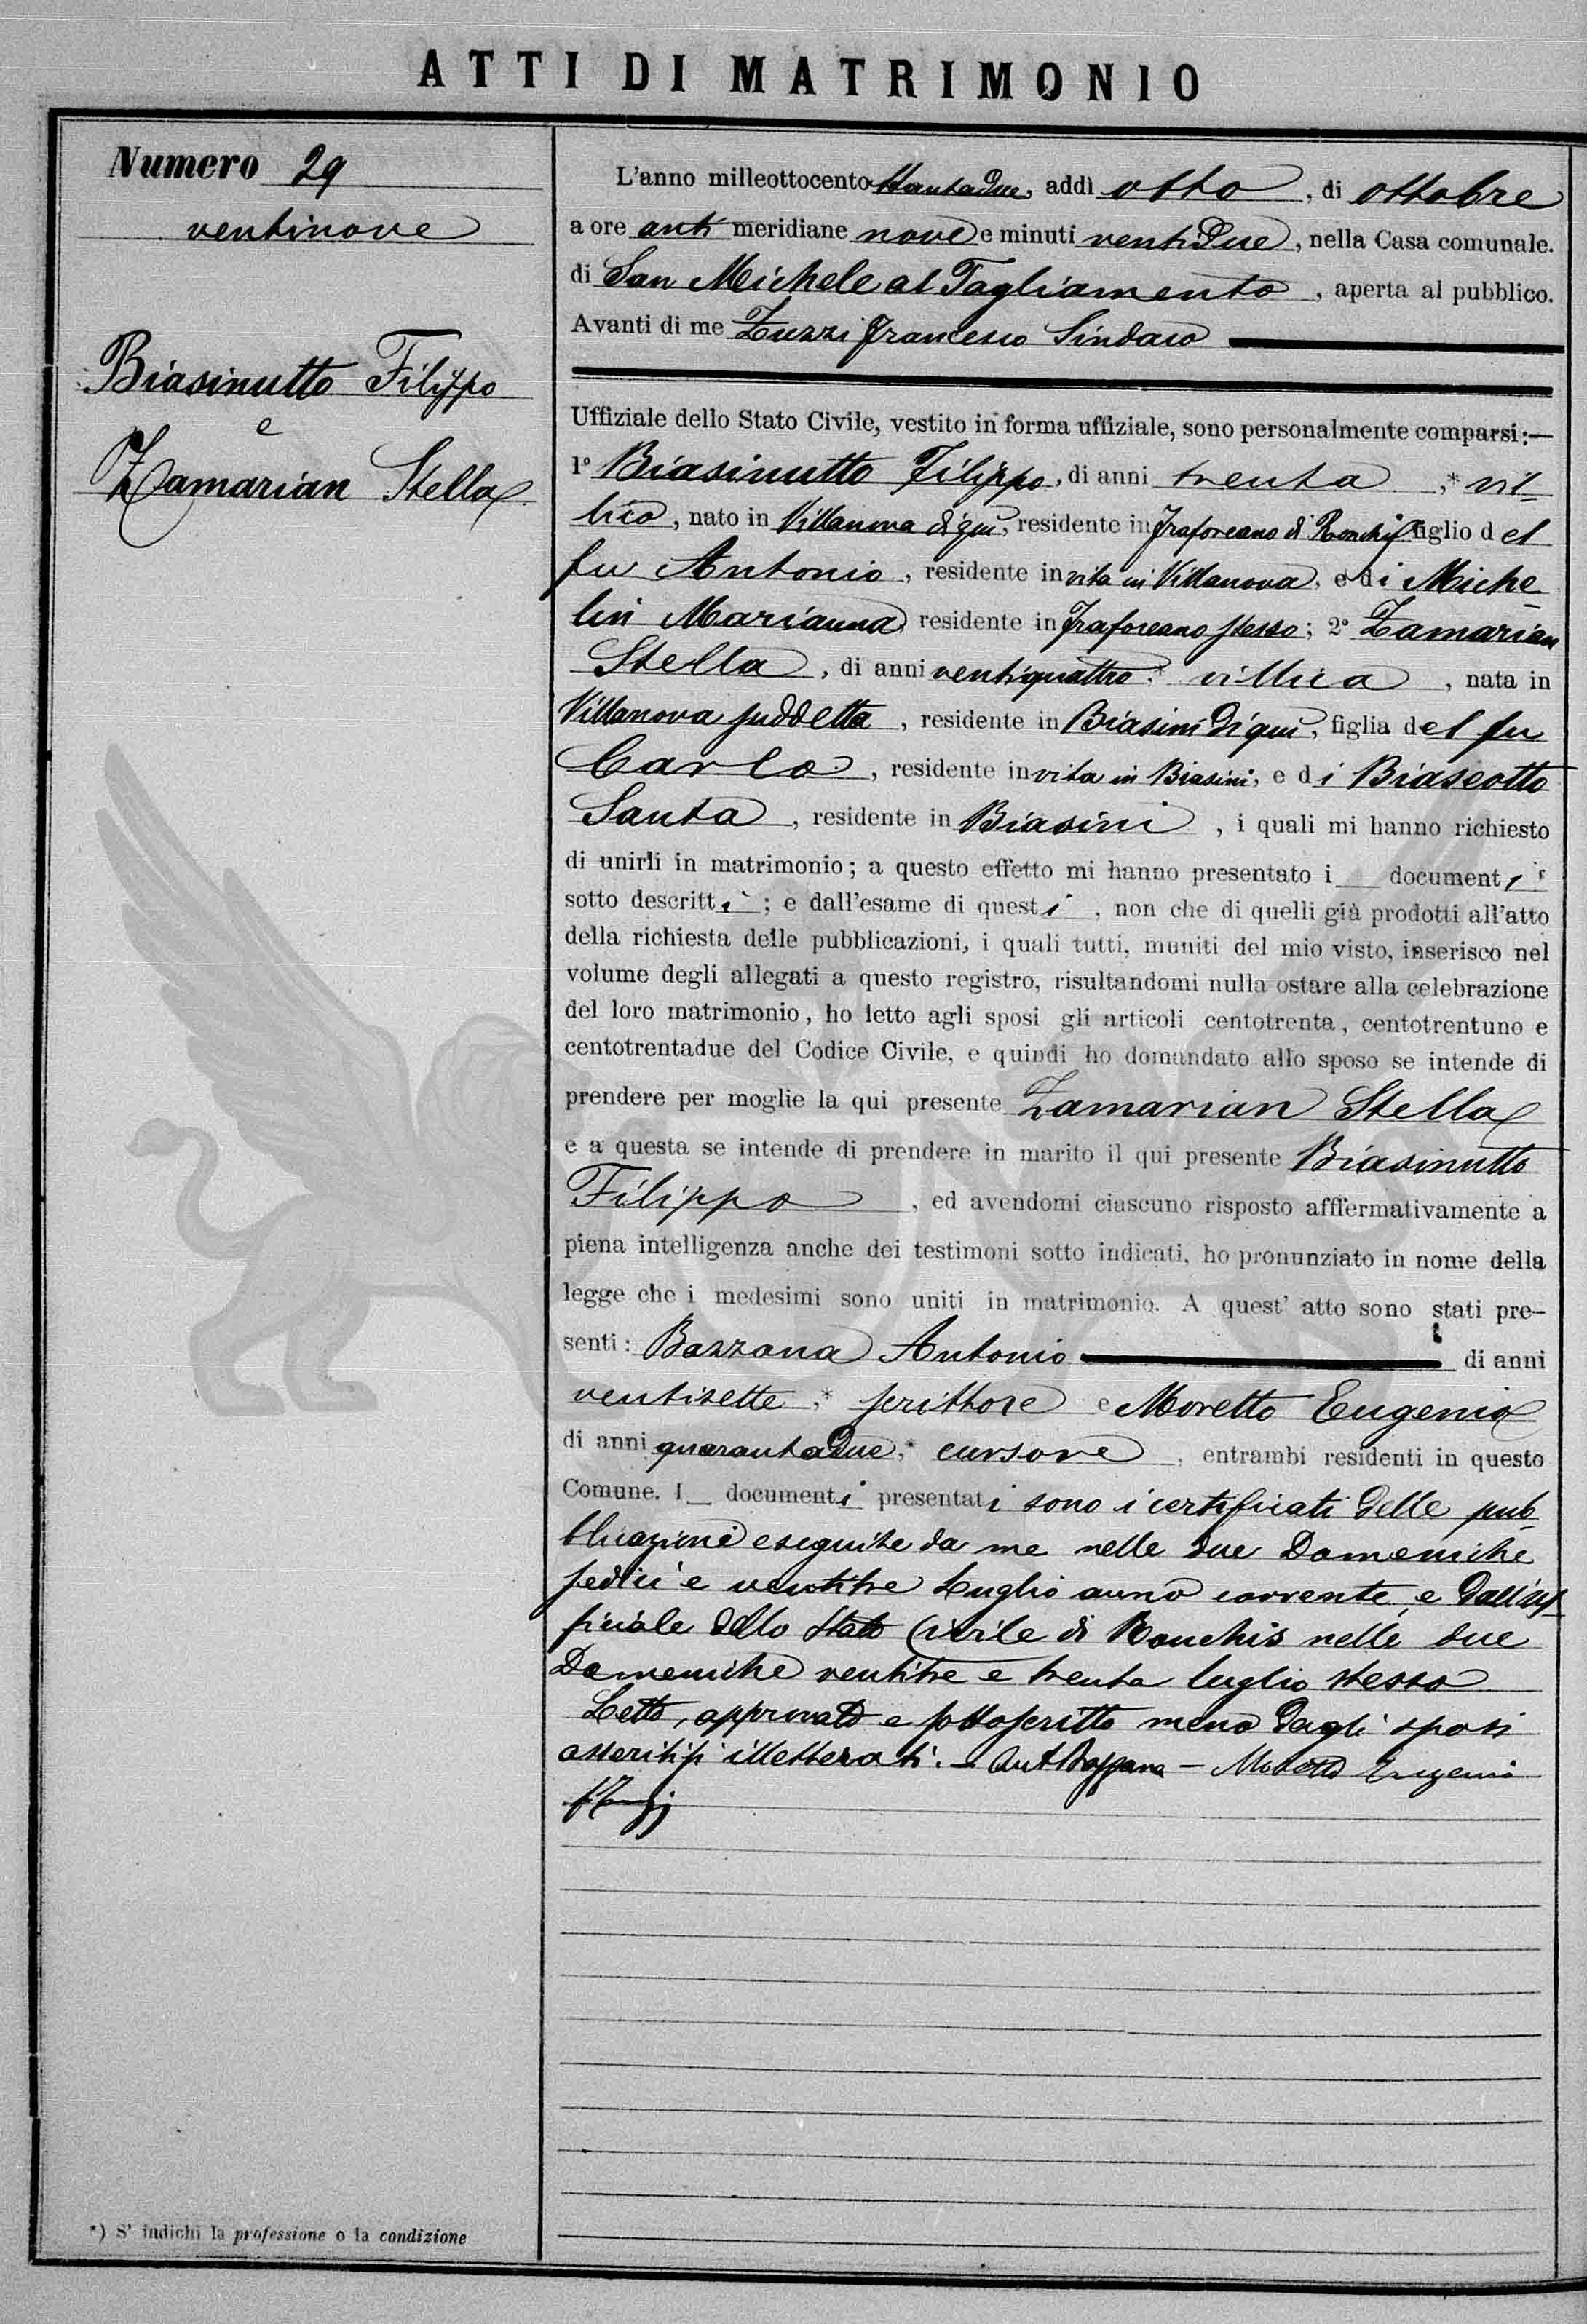 ATTI DI MATRIMONIO
Numero 29
ventinove
Biasinutto Filippo
e
Zamarian Stella
L'anno milleottocento ttantadue, addì otto, di ottobre
a ore anti meridiane nove e minuti ventidue, nella Casa comunale.
di San Michele al Tagliamento, aperta al pubblico.
Avanti di me Zuzzi Francesco Sindaco
Uffiziale dello Stato Civile, vestito in forma uffiziale, sono personalmente comparsi:—
1° Biasinutto Filippo, di anni trenta,* vil-
lico, nato in Villanova di qui, residente in Fraforeano di Ronchis figlio del
fu Antonio, residente in vita in Villanova, e di Miche-
lin Marianna, residente in Fraforeano stesso; 2° Zamarian
Stella, di anni ventiquattro,* villica, nata in
Villanova suddetta, residente in Biasini di qui, figlia del fu
Carlo, residente in vita in Biasini, e di Biaseotto
Santa, residente in Biasini, i quali mi hanno richiesto
di unirli in matrimonio; a questo effetto mi hanno presentato i documenti
sotto descritti; e dall'esame di questi, non che di quelli già prodotti all'atto
della richiesta delle pubblicazioni, i quali tutti, muniti del mio visto, inserisco nel
volume degli allegati a questo registro, risultandomi nulla ostare alla celebrazione
del loro matrimonio, ho letto agli sposi gli articoli centotrenta, centotrentuno e
centotrentadue del Codice Civile, e quindi ho domandato allo sposo se intende di
prendere per moglie la qui presente Zamarian Stella
e a questa se intende di prendere in marito il qui presente Biasinutto
Filippo, ed avendomi ciascuno risposto afffermativamente a
piena intelligenza anche dei testimoni sotto indicati, ho pronunziato in nome della
legge che i medesimi sono uniti in matrimonio. A quest' atto sono stati pre-
senti: Bazzana Antonio di anni
ventisette,* scrittore e Moretto Eugenio
di anni quarantadue,* cursore, entrambi residenti in questo
Comune. I documenti presentati sono i certificati delle pub-
blicazioni eseguite da me nelle due Domeniche
sedici e ventitre Luglio anno corrente, e dall'uf-
ficiale dello Stato Civile di Ronchis nelle due
Domeniche ventitre e trenta luglio stesso
Letto, approvato e sottoscritto meno dagli sposi
assertisi illetterati. - Ant Bazzana - Moretto Eugenio
*) S' indichi la professione o la condizione